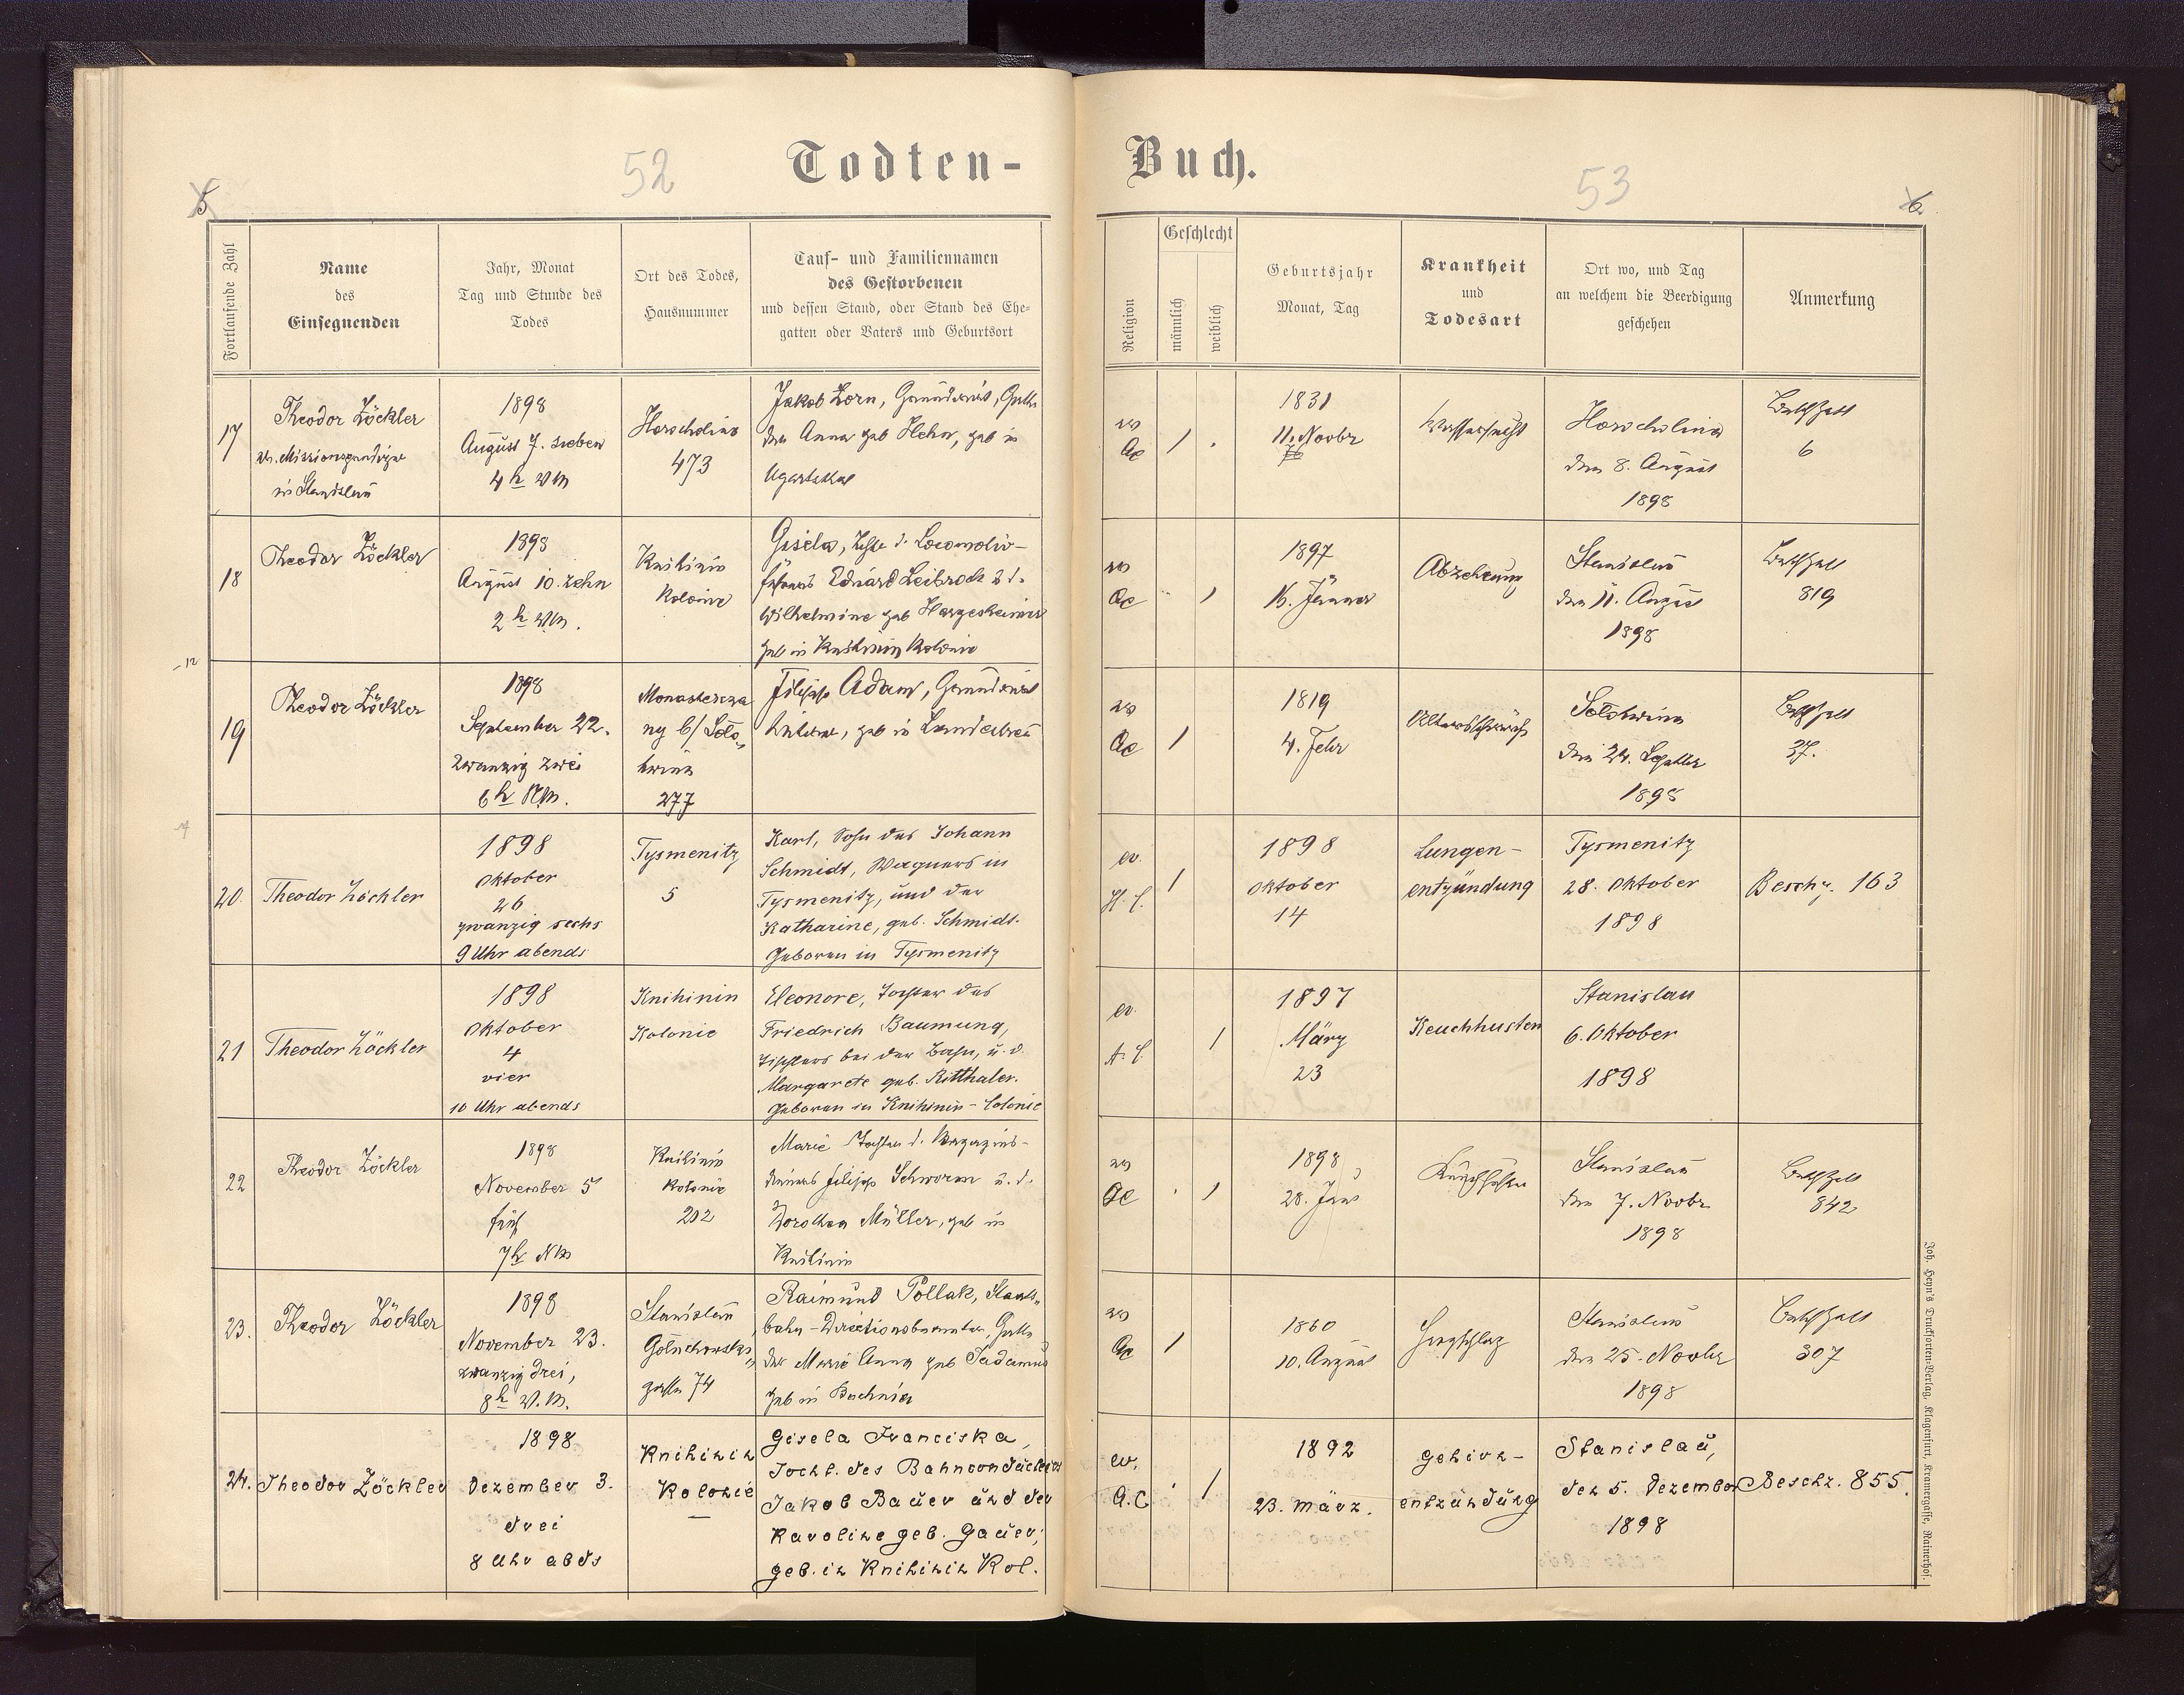 52
Todten-
5
Fortlaufende Zahl
Name
des
Einsegnenden
Jahr, Monat
Tag und Stunde des
Todes
Ort des Todes,
Hausnummer
Tauf- und Familiennamen
des Gestorbenen
und dessen Stand, oder Stand des Ehe-
gatten oder Vaters und Geburtsort
17
Theodor Zöckler
in Stanislau
1898
August 7. sieben
4 h VM
Horocholina
473
Jakob Zorn, Grundwirt, Gatte
der Anna geb Hehn, geb in
Ugartsthal
18
Theodor Zöckler
1898
August 10. zehn
2 h VM.
Knihinin
Kolonie
Gisela, d. Locomotiv-
führers Eduard Leibrock u d.
Wilhelmine geb Hargesheimer
geb in Knihinin Kolonie
19
Theodor Zöckler
1898
September 22.
zwanzig zwei
6 h NM.
Monastercza
ny b/ Solo„
twina
277
Filipp Adam, Grundwirt
geb in Landestreu
20.
Theodor Zöckler
1898
Oktober
26
zwanzig sechs
9 Uhr abends
Tysmenitz
5
Karl, Sohn des Johann
Schmidt, Wagners in
Tysmenitz, und der
Katharine, geb. Schmidt.
Geboren in Tysmenitz
21
Theodor Zöckler
1898
Oktober
4
vier
10 Uhr abends
Knihinin
Kolonie
Eleonore, Tochter des
Friedrich Baumung,
Tischlers bei der Bahn, u. d.
Margarete geb. Ritthaler.
Geboren in Knihinin-Colonie
22
Theodor Zöckler
1898
November 5
fünf
7 h NM
Knihinin
Kolonie
202
Marie Tochter d. Magazins-
dieners Filipp Schworm u. d.
Dorothea Müller, geb in
Knihinin
23.
Theodor Zöckler
1898
November 23.
zwanzig drei,
8 h V.M.
Stanislau
Goluchowski„
gasse 74
Raimund Pollak, Staats„
bahn-Directionsbeamter, Gatte
der Marie Anna geb Sadamus
geb in Bochnia
24.
Theodor Zöckler
1898
Dezember 3.
drei
8 Uhr abds
Knihinin
Kolonie
Gisela Franciska,
Tocht. des Bahnconducteurs
Jakob Bauer und der
Karoline geb. Gauer;
geb. in Knihinin Kol.
Buch.
53
6.
Religion
Geschlecht
männlich
weiblich
Geburtsjahr
Monat, Tag
Krankheit
und
Todesart
Ort wo, und Tag
an welchem die Beerdigung
geschehen
Anmerkung
ev
AC
1831
11. Novbr
Wassersucht
Horocholina
den 8. August
1898
6
ev
AC
1897
16. Jänner
Abzehrung
Stanislau
den 11. August
1898
819
ev
AC
1819
4. Febr
Altersschwäche
Solotwina
den 24. Septbr
1898
37.
ev.
H. C.
1898
Oktober
14
Lungen-
entzündung
Tysmenitz
28. Oktober
1898
Beschz. 163
ev.
A. C.
1897
März
23
Keuchhusten
Stanislau
6. Oktober
1898
ev
AC
1898
28. Juni
Keuchhusten
Stanislau
den 7. Novbr
1898
842
ev
AC
1860
10. August
Herzschlag
Stanislau
den 25. Novbr
1898
307
ev.
A.C
1892
23. März.
Gehirn-
entzündung
Stanislau,
den 5. Dezember
1898
Beschz. 855.
Joh. Heyn's Drucksorten-Verlag, Klagenfurt, Kramergasse, Rainerhof.